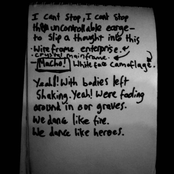 I cant stop, I cant stop
this uncontrollable earge-
to slip a thought into this
-Wireframe enterprise.
-crystal mainframe.
-Macho! White fao camoflage.
Yeah! With bodies left
Shaking. Yeah! Were fading
around in our graves.
We dance like fire.
We dance like heroes.